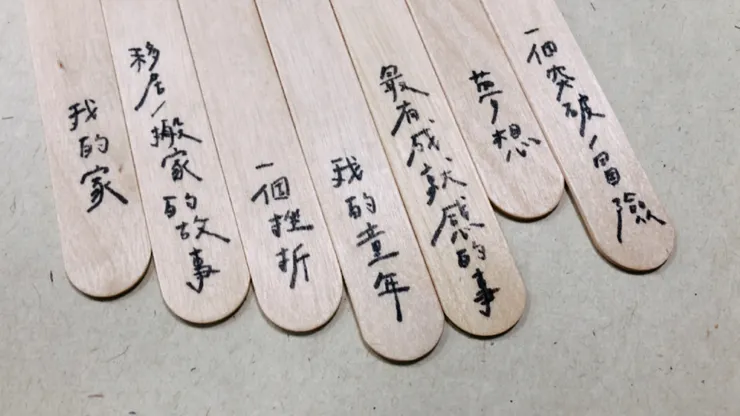 我的家
移居/搬家的故事
一個挫折
我的童年
最有成就感的事
夢想
一個突破/冒險